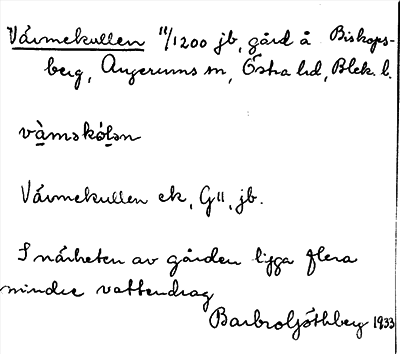 Värmekullen 11/1200 jb, gård å Biskops-
berg, Augerums sn, Östra hd, Blek. l.
vä̀məkọ́lən
Värmekullen ek, G11, jb.
I närheten av gården ligga flera
mindre vattendrag
Barbro Ljóthberg 1933